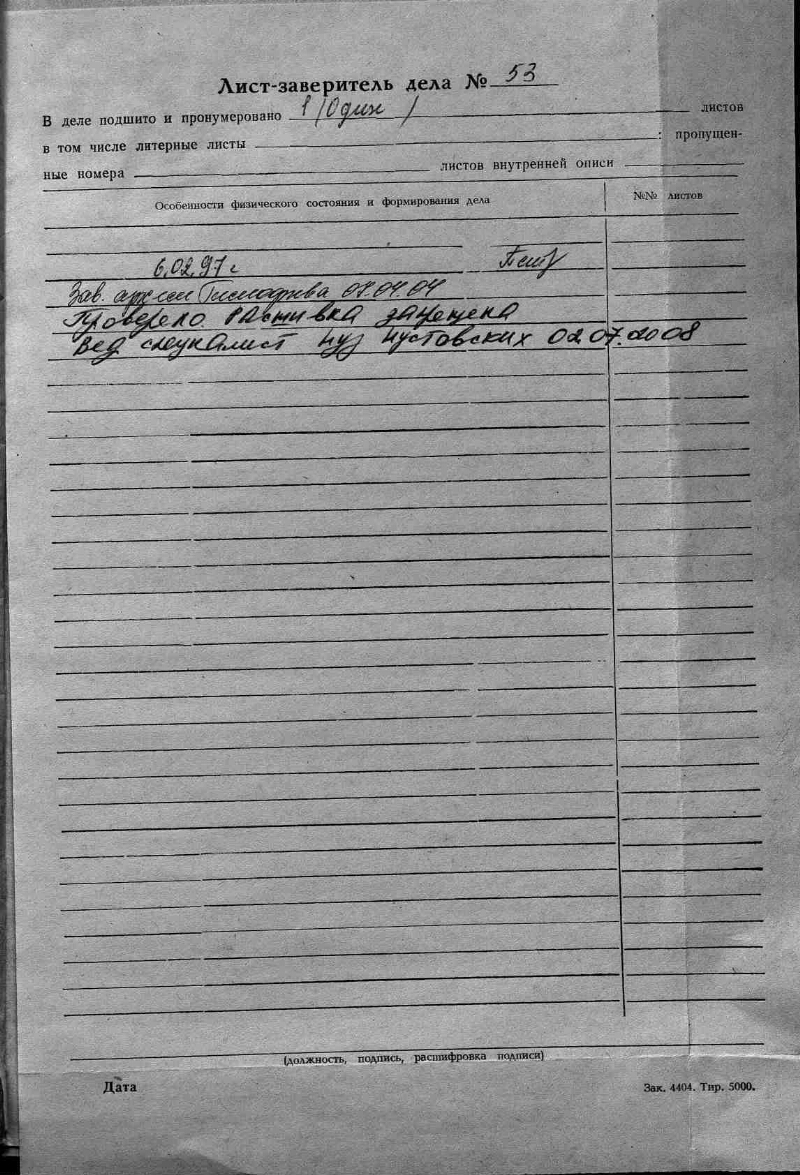 Лист-заверитель дела № 53
В деле подшито и пронумеровано 1 /Один/ листов
в том числе литерные листы : пропущен-
ные номера листов внутренней описи
Особенности физического состояния и формирования дела №№ листов
6.02.97 г.
Зав. 07.04.04
Проверено запрещена
Вед специалист 02.07.2008
(должность, подпись, расшифровка подписи)
Дата Зак. 4404. Тир. 5000.